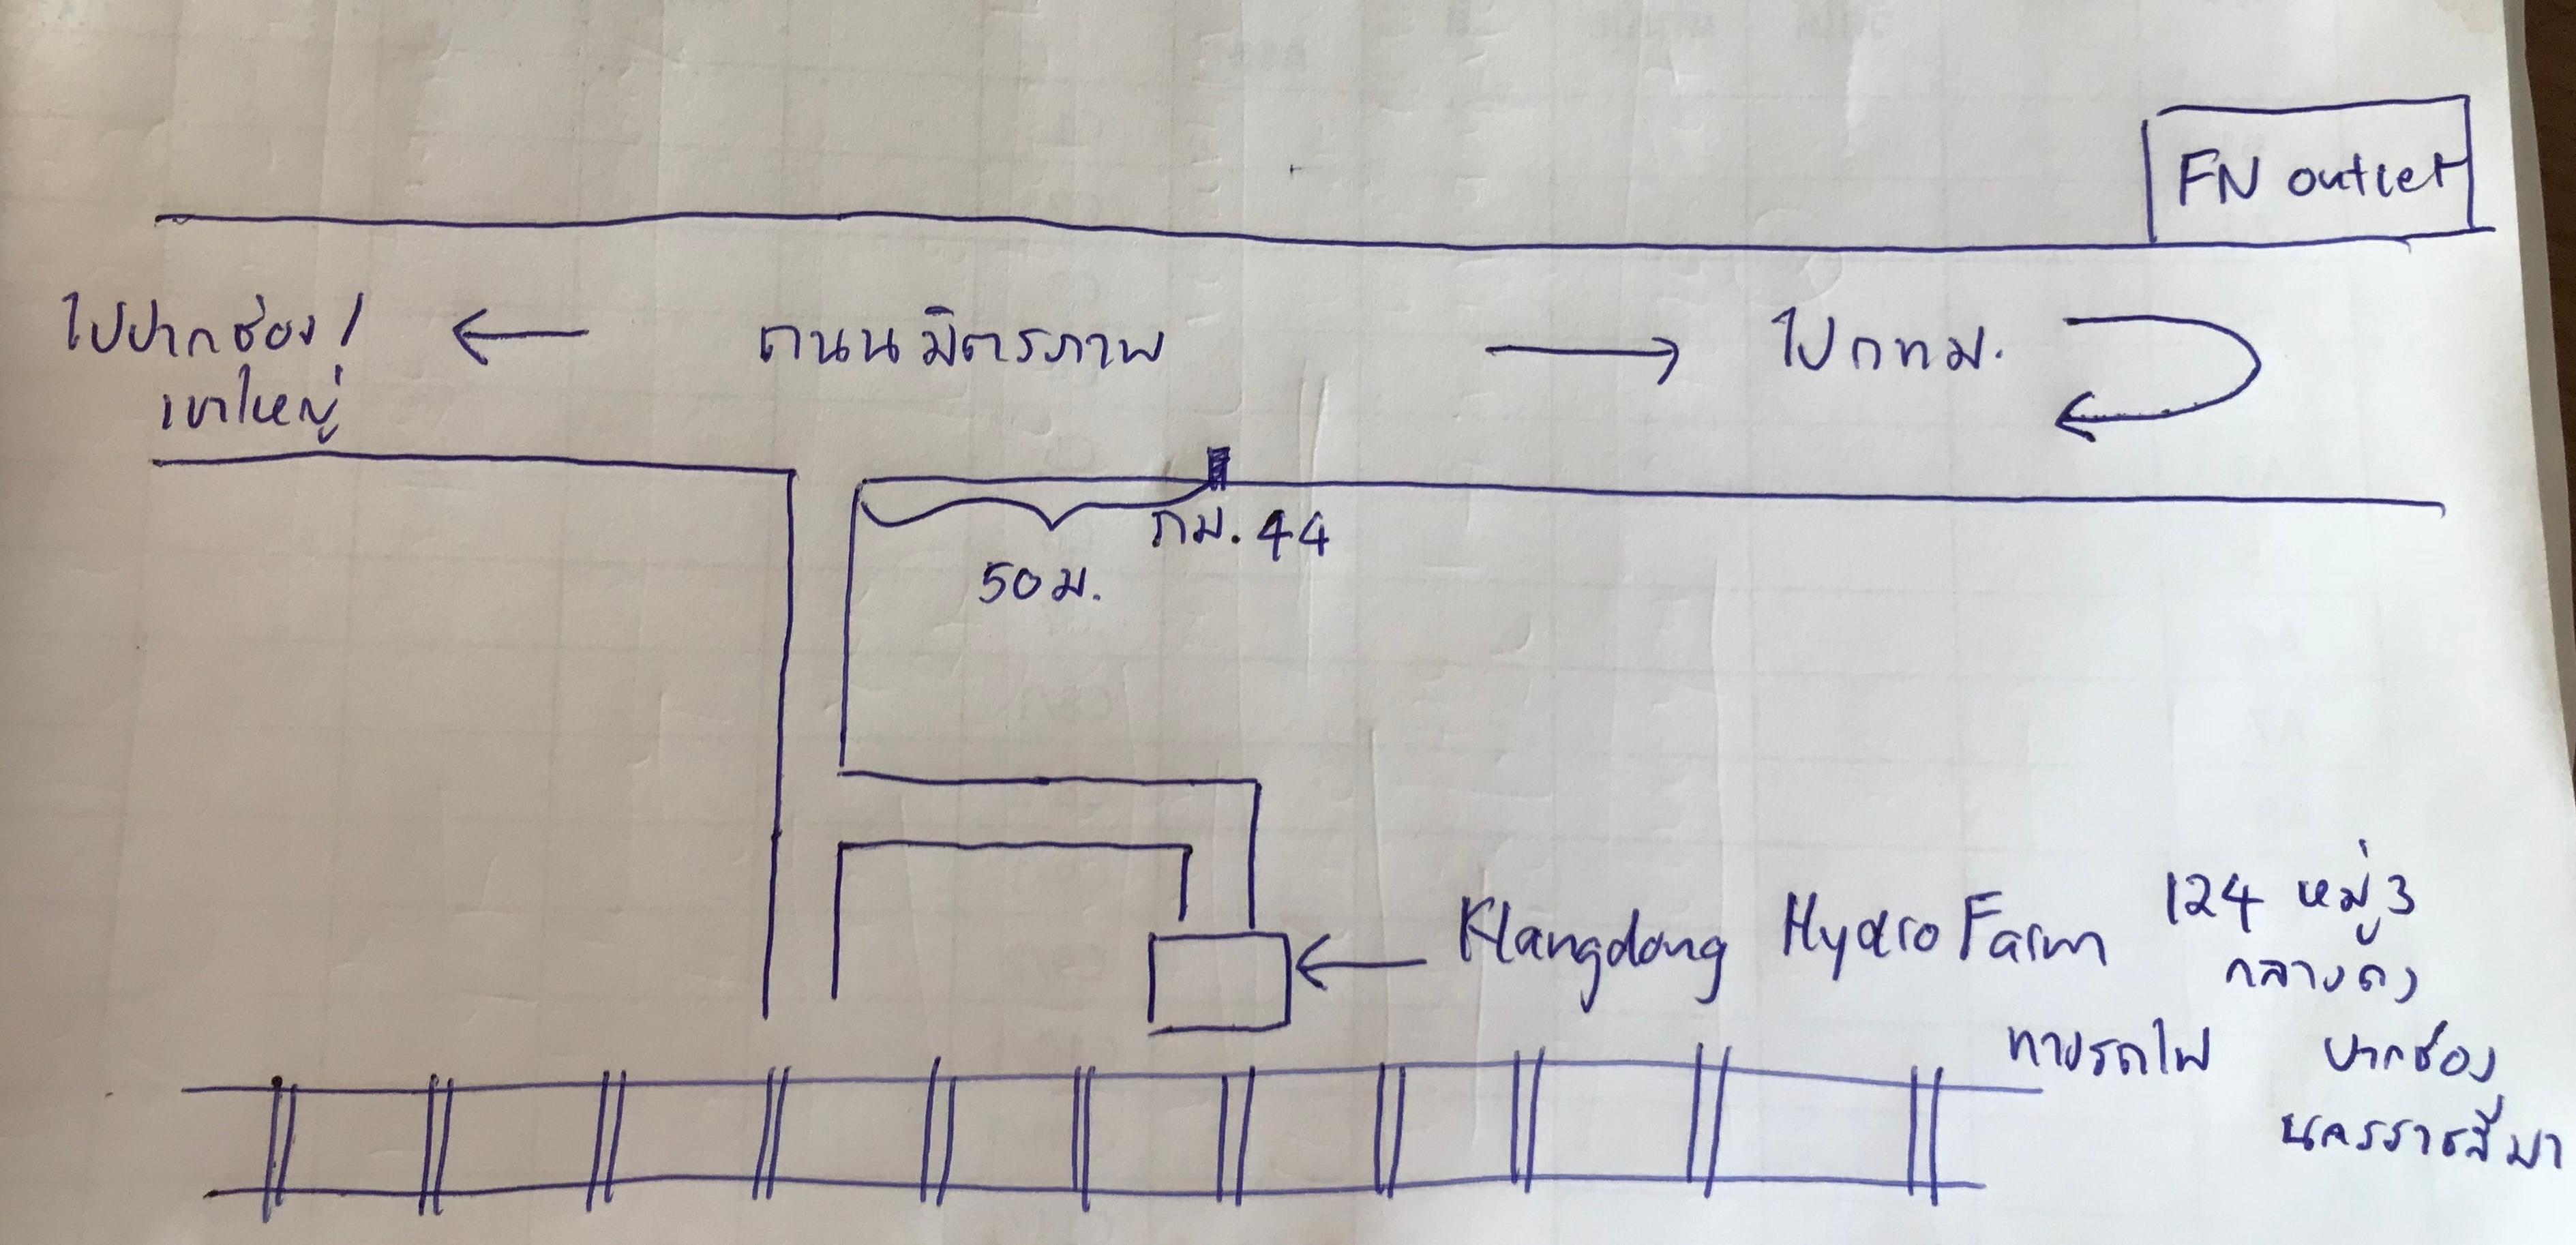 FN outlet
ไปปากช่อง/
เขาใหญ่
ถนนมิตรภาพ
ไปกทม.
กม. 44
50 ม.
Klangdong Hydro Farm
124 หมู่ 3
กลางดง
ปากช่อง
นครราชสีมา
ทางรถไฟ